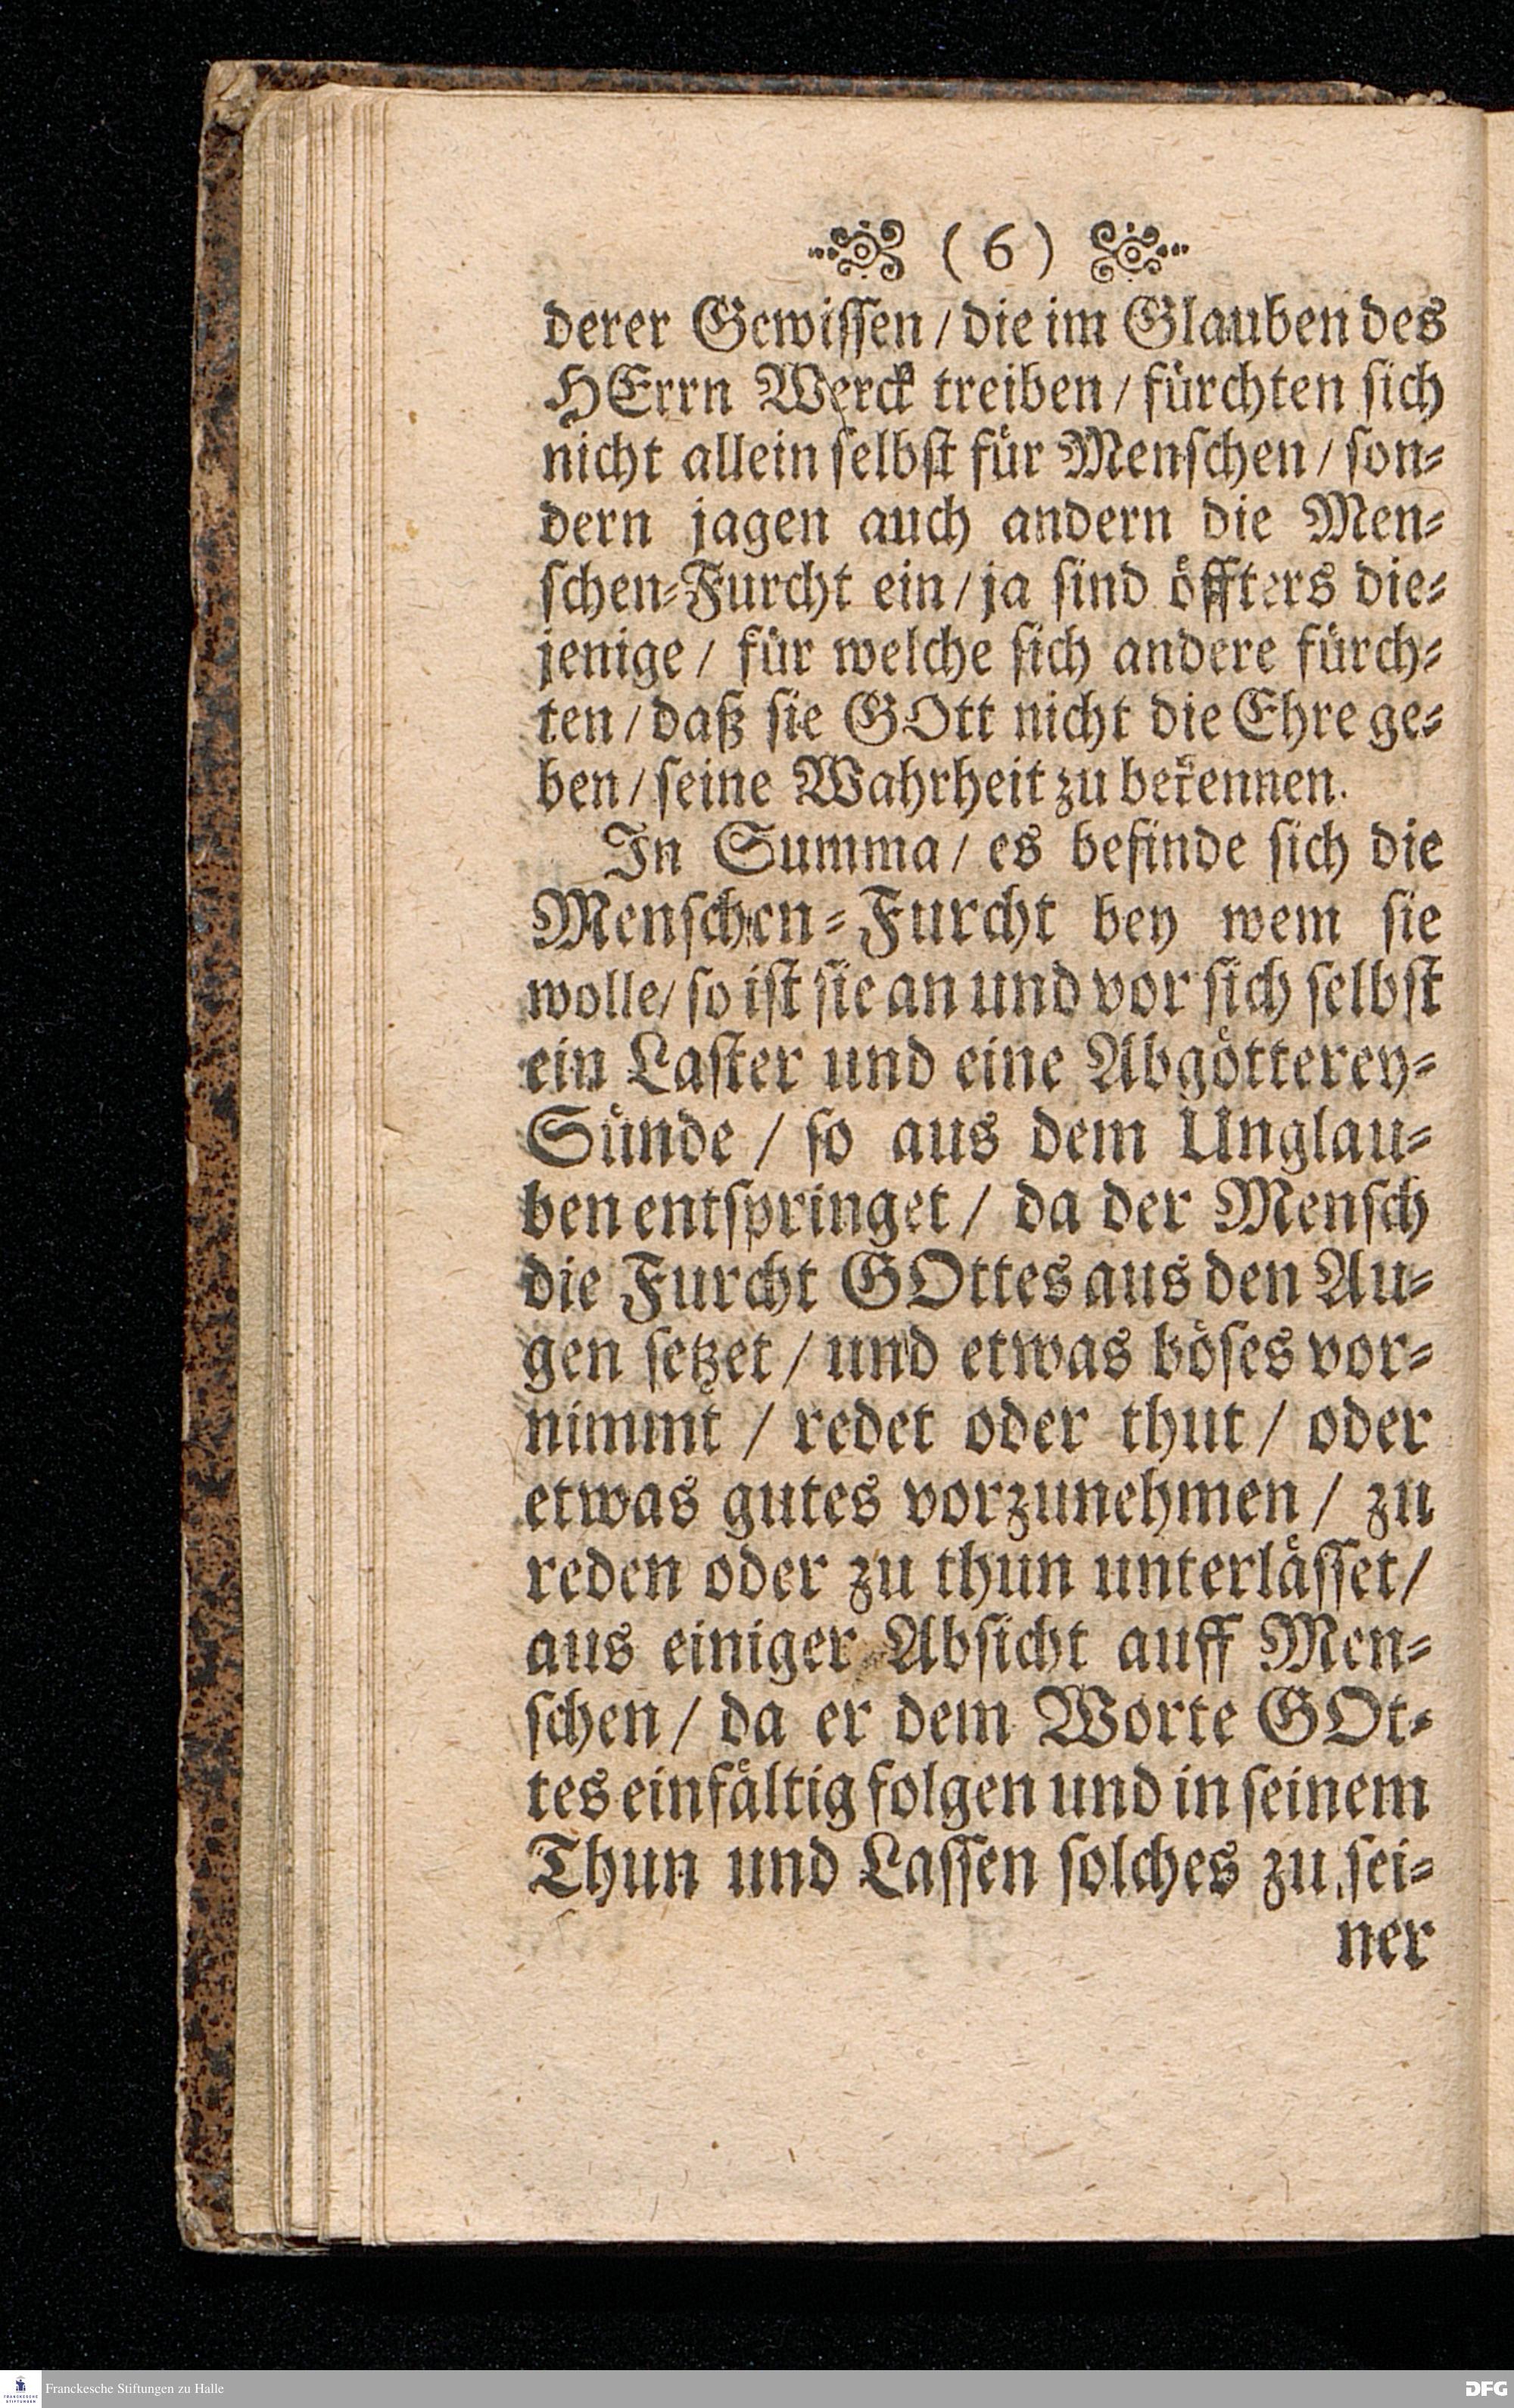 ( 6 )
derer Gewissen / die im Glauben des
HErrn Werck treiben / fürchten sich
nicht allein selbst für Menschen / son-
dern jagen auch andern die Men-
schen-Furcht ein / ja sind öffters die-
jenige / für welche sich andere fürch-
ten / daß sie GOtt nicht die Ehre ge-
ben / seine Wahrheit zu bekennen.
In Summa / es befinde sich die
Menschen-Furcht bey wem sie
wolle / so ist sie an und vor sich selbst
ein Laster und eine Abgötterey-
Sünde / so aus dem Unglau-
ben entspringet / da der Mensch
die Furcht GOttes aus den Au-
gen setzet / und etwas böses vor-
nimmt / redet oder thut / oder
etwas gutes vorzunehmen / zu
reden oder zu thun unterlässet /
aus einiger Absicht auff Men-
schen / da er dem Worte GOt-
tes einfältig folgen und in seinem
Thun und Lassen solches zu sei-
ner
FRANCKESCHE STIFTUNGEN
Franckesche Stiftungen zu Halle
DFG